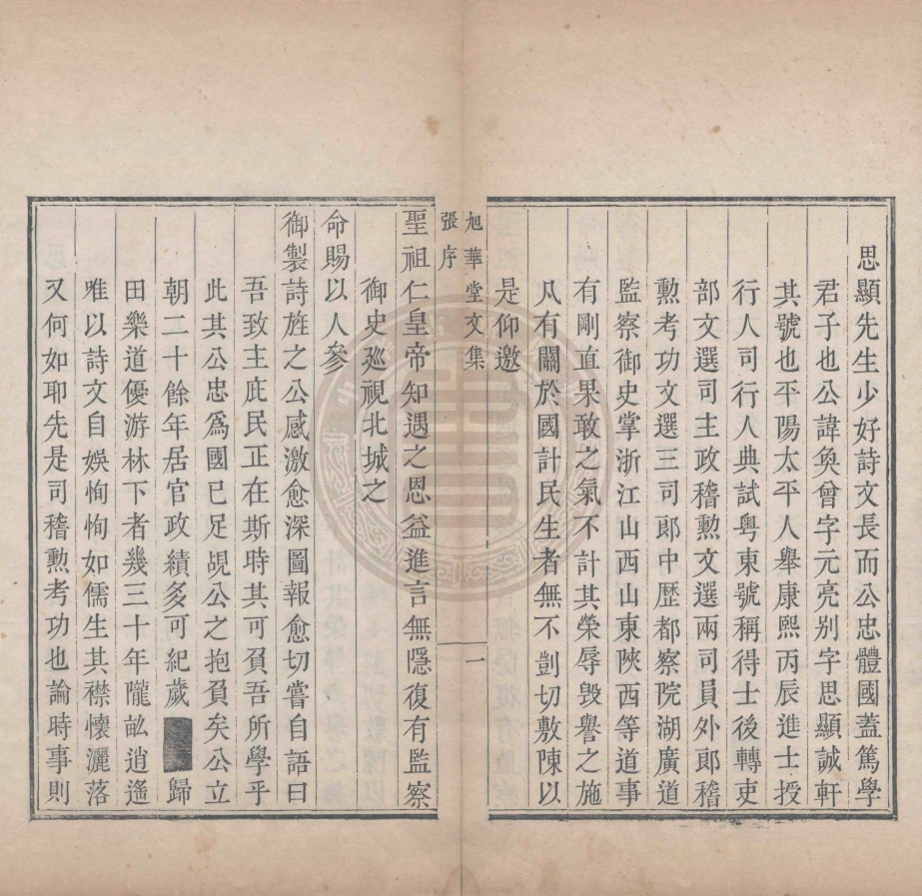 思顯先生少好詩文長而公忠體國蓋篤學
君子也公諱奐曾字元亮别字思顯誠軒
其號也平陽太平人舉康熙丙辰進士授
行人司行人典試粵東號稱得士後轉吏
部文選司主政稽勲文選兩司員外郎稽
勲考功文選三司郎中歷都察院湖廣道
監察御史掌浙江山西山東陝西等道事
有剛直果敢之氣不計其榮辱毀譽之施
凡有關於國計民生者無不剴切敷陳以
是仰邀
旭華堂文集
張序
一
聖祖仁皇帝知遇之恩益進言無隱復有監察
御史廵視北城之
命賜以人參
御製詩旌之公感激愈深圖報愈切嘗自語曰
吾致主庇民正在斯時其可負吾所學乎
此其公忠爲國已足覘公之抱負矣公立
朝二十餘年居官政績多可紀歲歸
田樂道優游林下者幾三十年隴畝逍遙
唯以詩文自娛恂恂如儒生其襟懷灑落
又何如耶先是司稽勲考功也論時事則